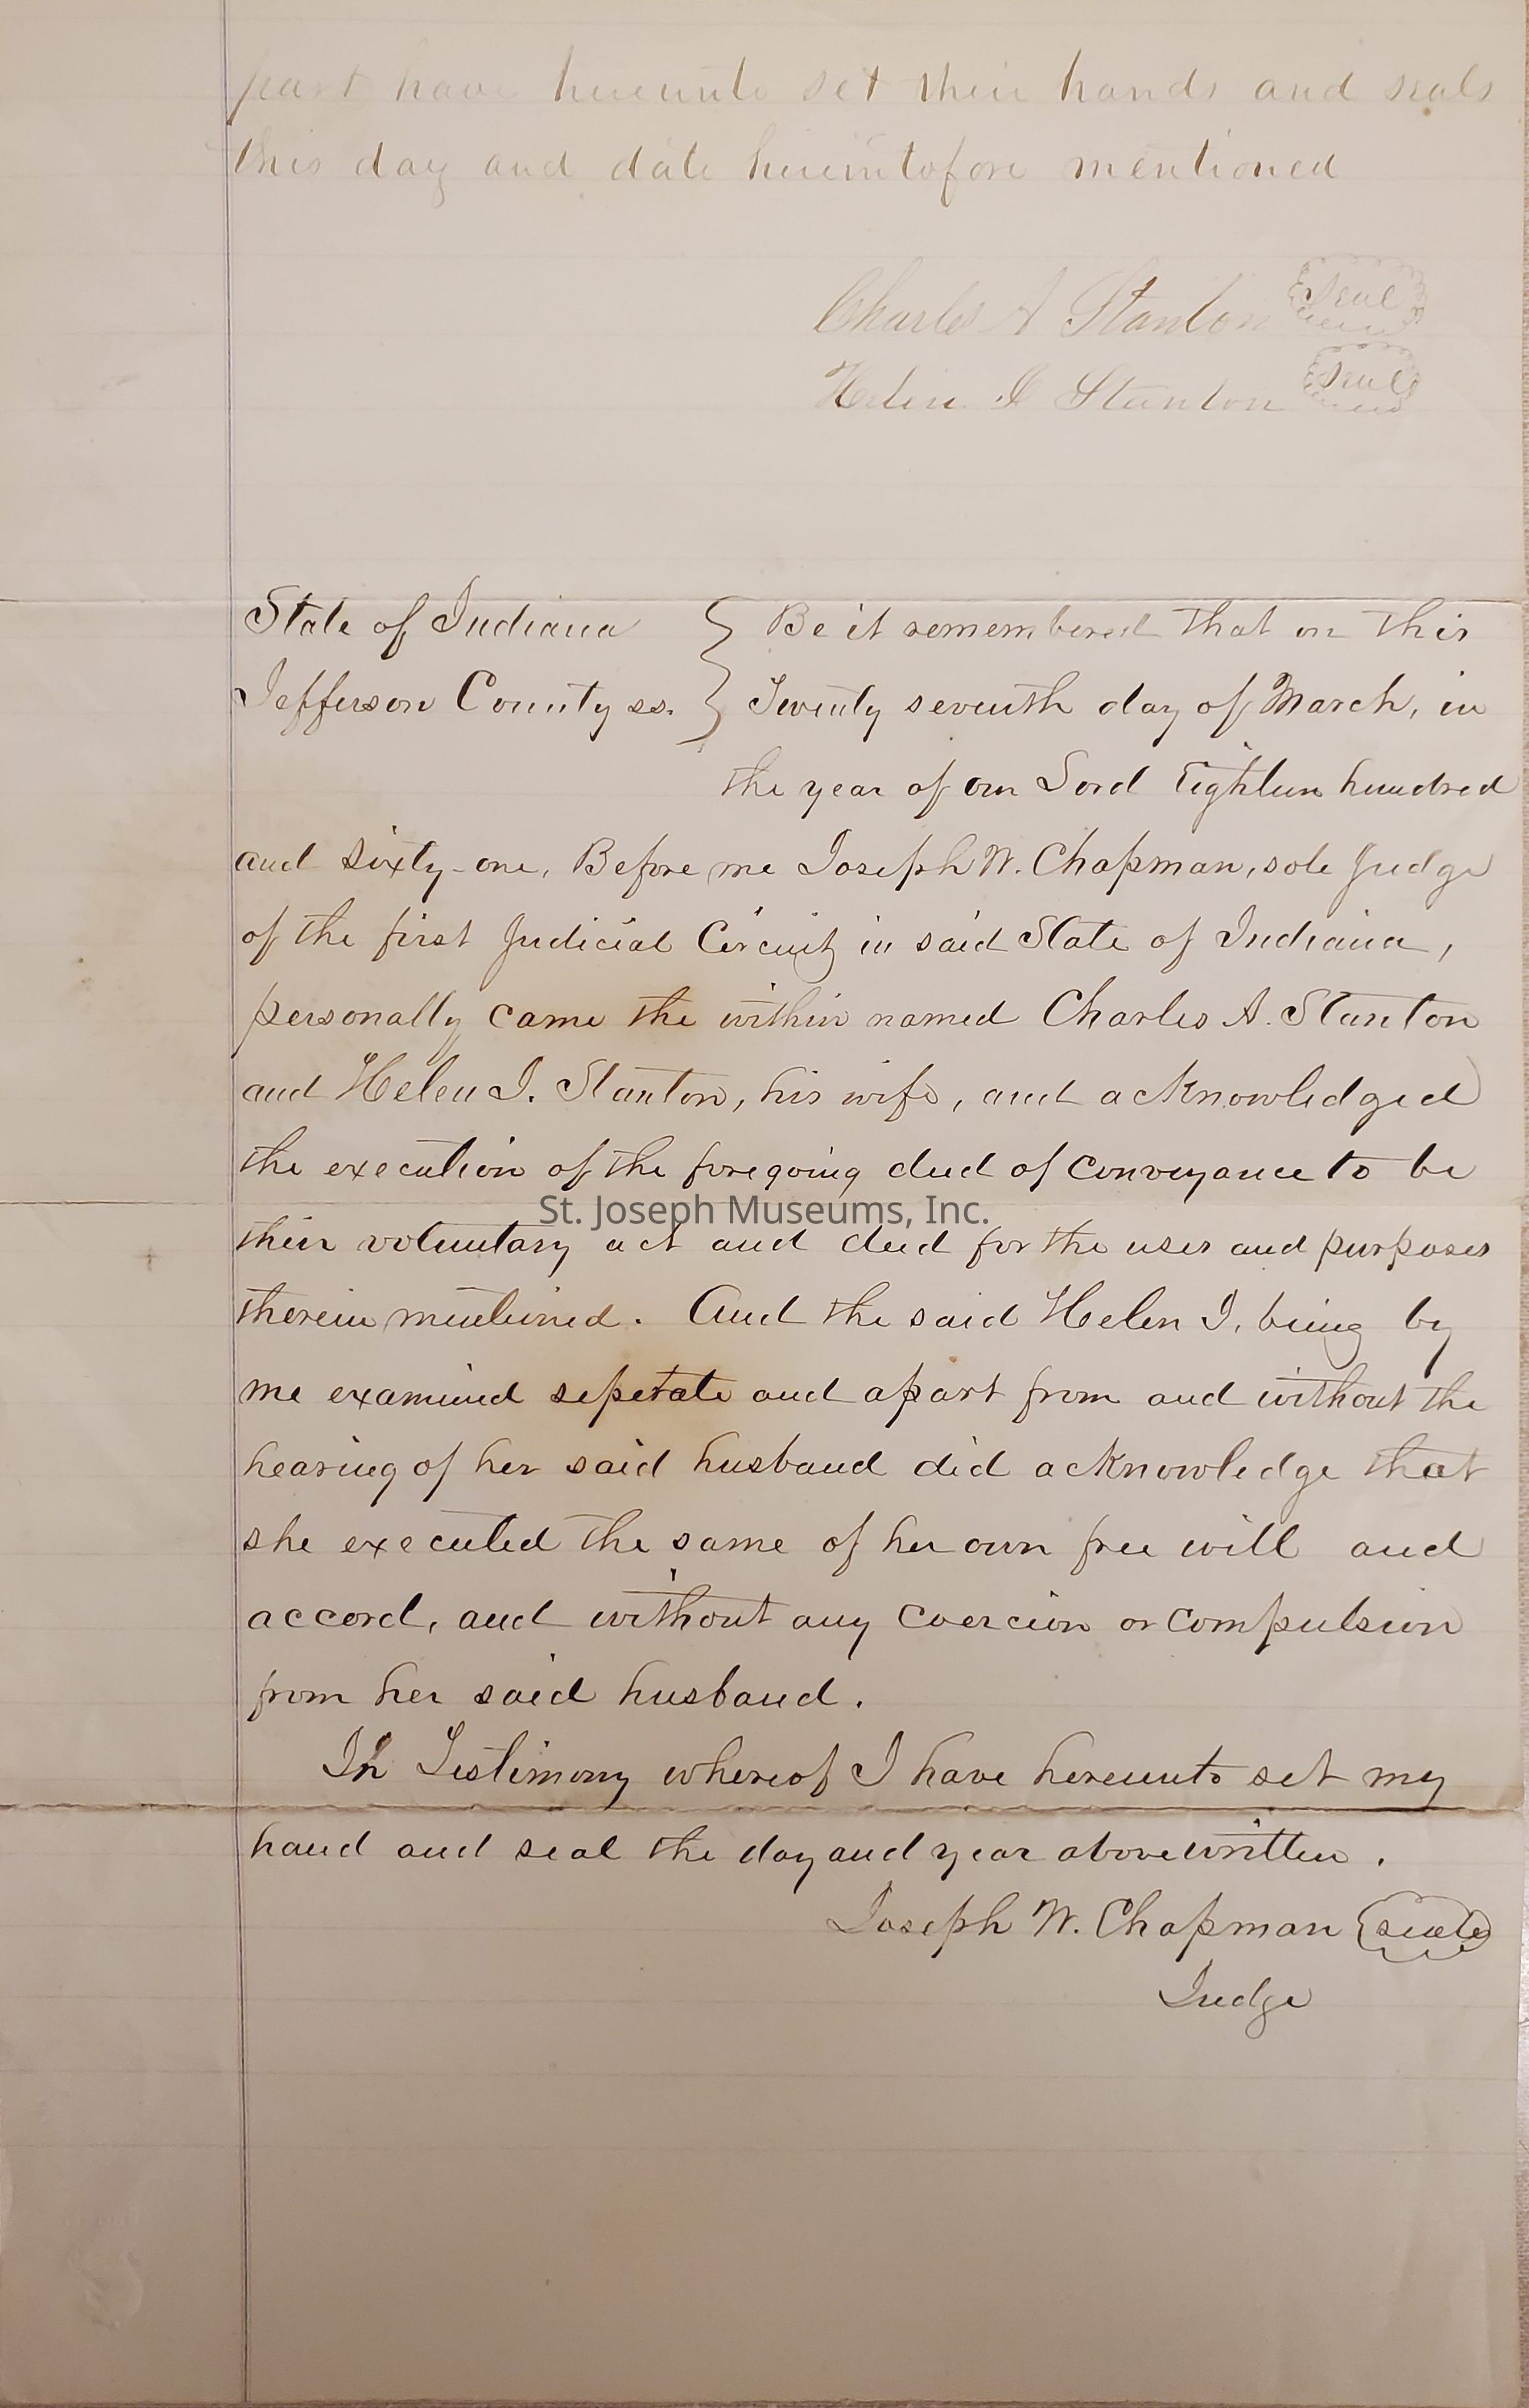 part have hereunto set their hands and seals
this day and date hereintofore mentioned
Charles A Stanton Seal
Helen I Stanton Seal
State of Indiana } Be it remembered that on this
Jefferson County ss. } Twenty seventh day of March, in
the year of our Lord Eighteen hundred
and sixty-one, Before me Joseph W. Chapman, sole Judge
of the first Judicial Circuit in said State of Indiana,
personally came the within named Charles A. Stanton
and Helen I. Stanton, his wife, and acknowledged
the execution of the foregoing deed of conveyance to be
St. Joseph Museums, Inc.
their voluntary act and deed for the uses and purposes
therein mentioned. And the said Helen I, being by
me examined seperate and apart from and without the
hearing of her said husband did acknowledge that
she executed the same of her own free will and
accord, and without any coercion or compulsion
from her said husband.
In Testimony whereof I have hereunto set my
hand and seal the day and year above written.
Joseph W. Chapman seal
Judge